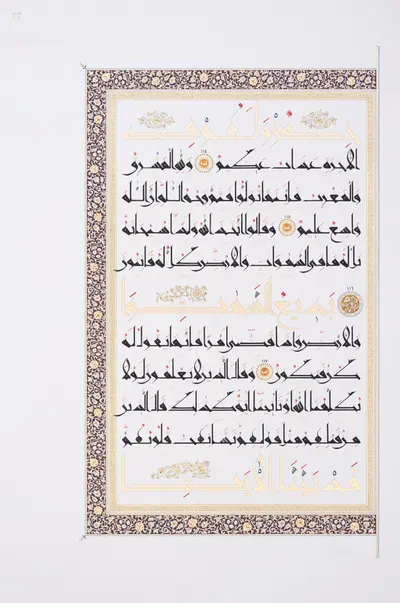 خزي ولهم في
الاخرة عذاب عظيم ١١٤ ولله المشرق
والمغرب فاينما تولوا فثم وجه الله ان الله
واسع عليم ١١٥ وقالوا اتخذ الله ولدا سبحنه
بل له ما في السموات والارض كل له قانتون
١١٦ بديع السموات
والارض واذا قضى امرا فانما يقول له
كن فيكون ١١٧ وقال الذين لا يعلمون لولا
يكلمنا الله او تاتينا اية كذلك قال الذين
من قبلهم مثل قولهم تشابهت قلوبهم
قد بينا الايات